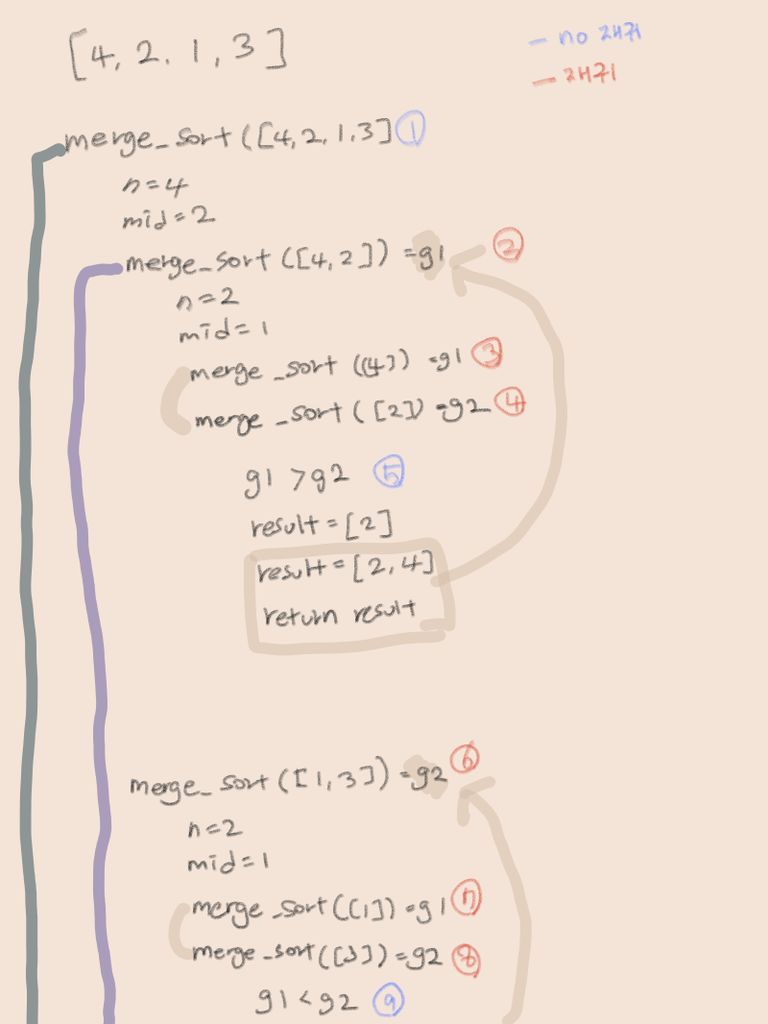 [4, 2. 1, 3]
— no 재귀
— 재귀
merge_sort([4,2,1,3] ①
n=4
mid=2
merge_sort([4,2]) =g1 ②
n=2
mid=1
merge_sort([4]) =g1 ③
merge_sort([2]) =g2 ④
g1 >g2 ⑤
result=[2]
result=[2,4]
return result
merge_sort([1,3]) =g2 ⑥
n=2
mid=1
merge_sort([1]) =g1 ⑦
merge_sort([3]) =g2 ⑧
g1 < g2 ⑨